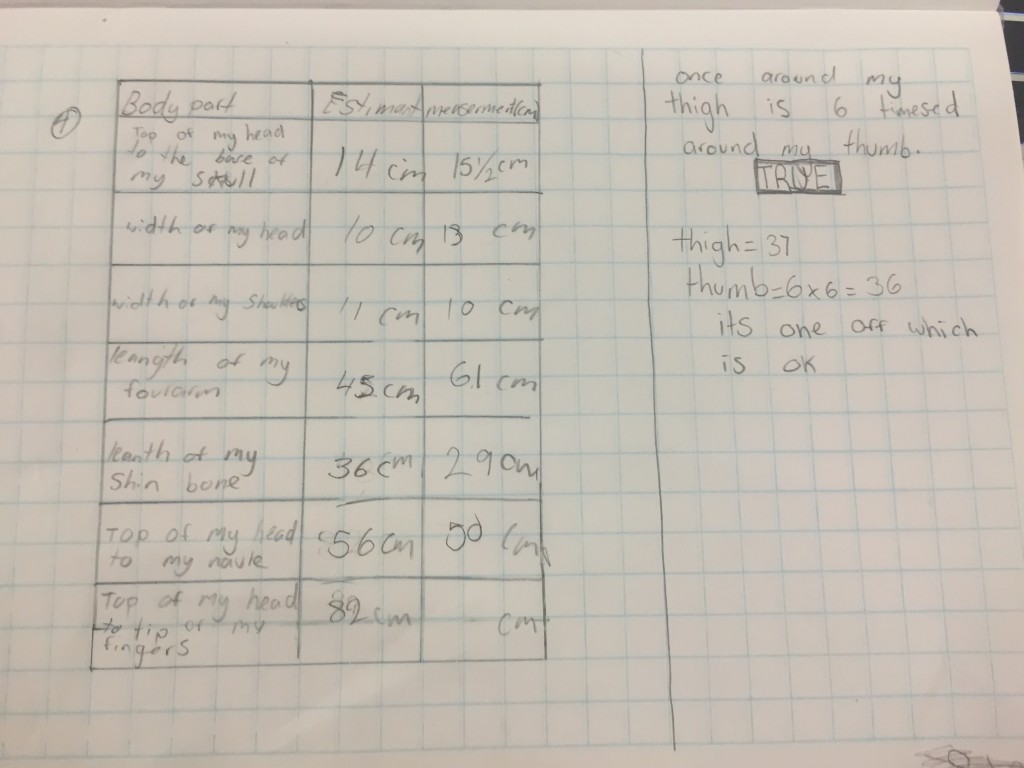 Body part Estimart measerment(cm)
Top of my head
to the base of
my skull
14 cm 15½ cm
width of my head 10 cm 13 cm
width of my 11 cm 10 cm
leangth of my
foularm
45 cm 61 cm
leanth of my
Shin bone
36cm 29cm
Top of my head
to my navle
56cm 50 cm
Top of my head
to tip of my
fingers
82cm cm
once around my
thigh is 6 timesed
around my thumb.
TRUE
thigh = 37
thumb=6x6=36
its one off which
is ok